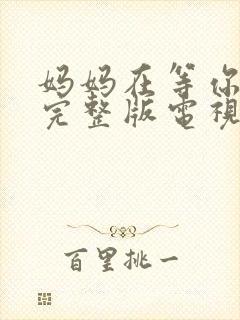 妈妈在等你
完整版電視
百里挑一